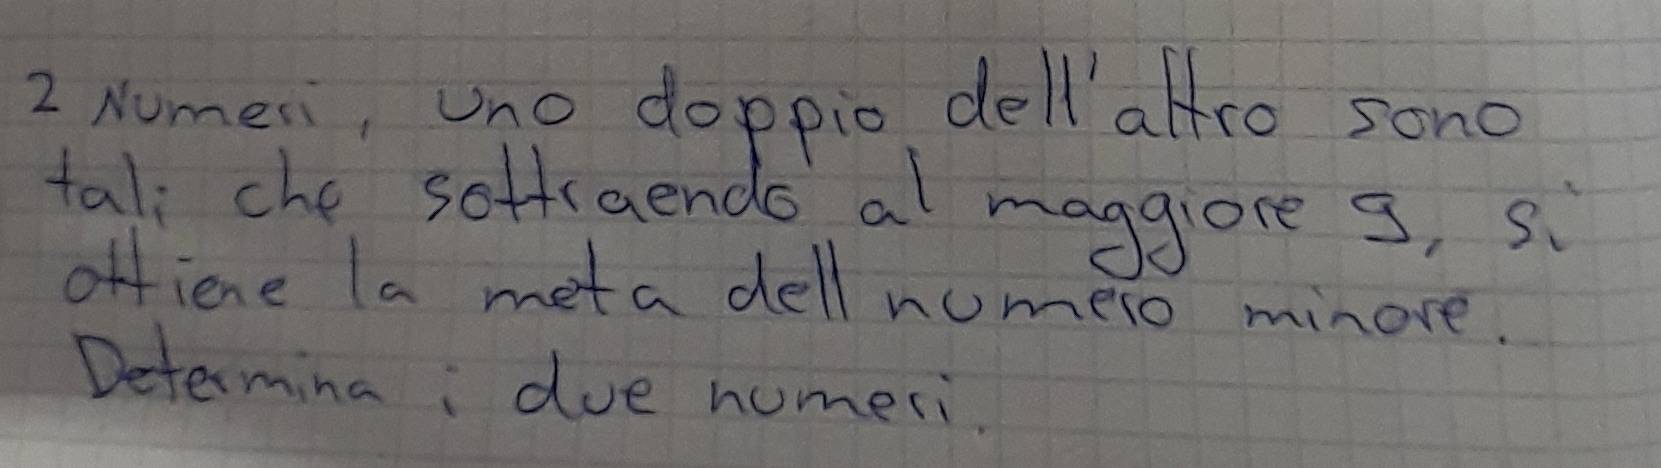 2 Numeri, uno doppio dell'altro sono
tali che sottraendo al maggiore 9, si
ottiene la meta dell numero minore.
Determina i due numeri.